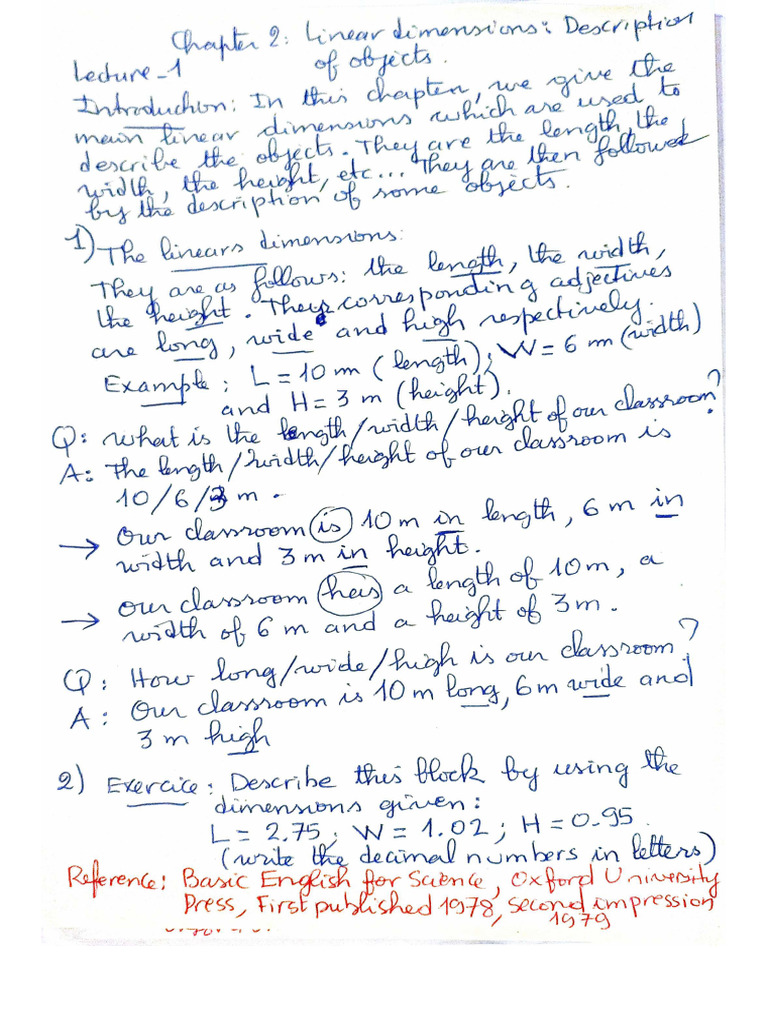 Chapter 2: Linear dimensions: Description
Lecture_1 of objects.
Introduction: In this chapter, we give the
main linear dimensions which are used to
describe the objects. They are the length, the
width, the height, etc... They are then followed
by the description of some objects.
1) The linears dimensions:
They are as follows: the length, the width,
the height. Their corresponding adjectives
are long, wide and high respectively.
Example: L = 10 m (length); W = 6 m (width)
and H = 3 m (height).
Q: what is the length/width/height of our classroom?
A: The length/width/height of our classroom is
10/6/3 m.
→ Our classroom is 10 m in length, 6 m in
width and 3 m in height.
→ Our classroom has a length of 10 m, a
width of 6 m and a height of 3 m.
Q: How long/wide/high is our classroom?
A: Our classroom is 10 m long, 6 m wide and
3 m high
2) Exercice: Describe this block by using the
dimensions given:
L = 2.75; W = 1.02; H = 0.95.
(write the decimal numbers in letters)
Reference: Basic English for Science, Oxford University
Press, First published 1978, second impression
1979